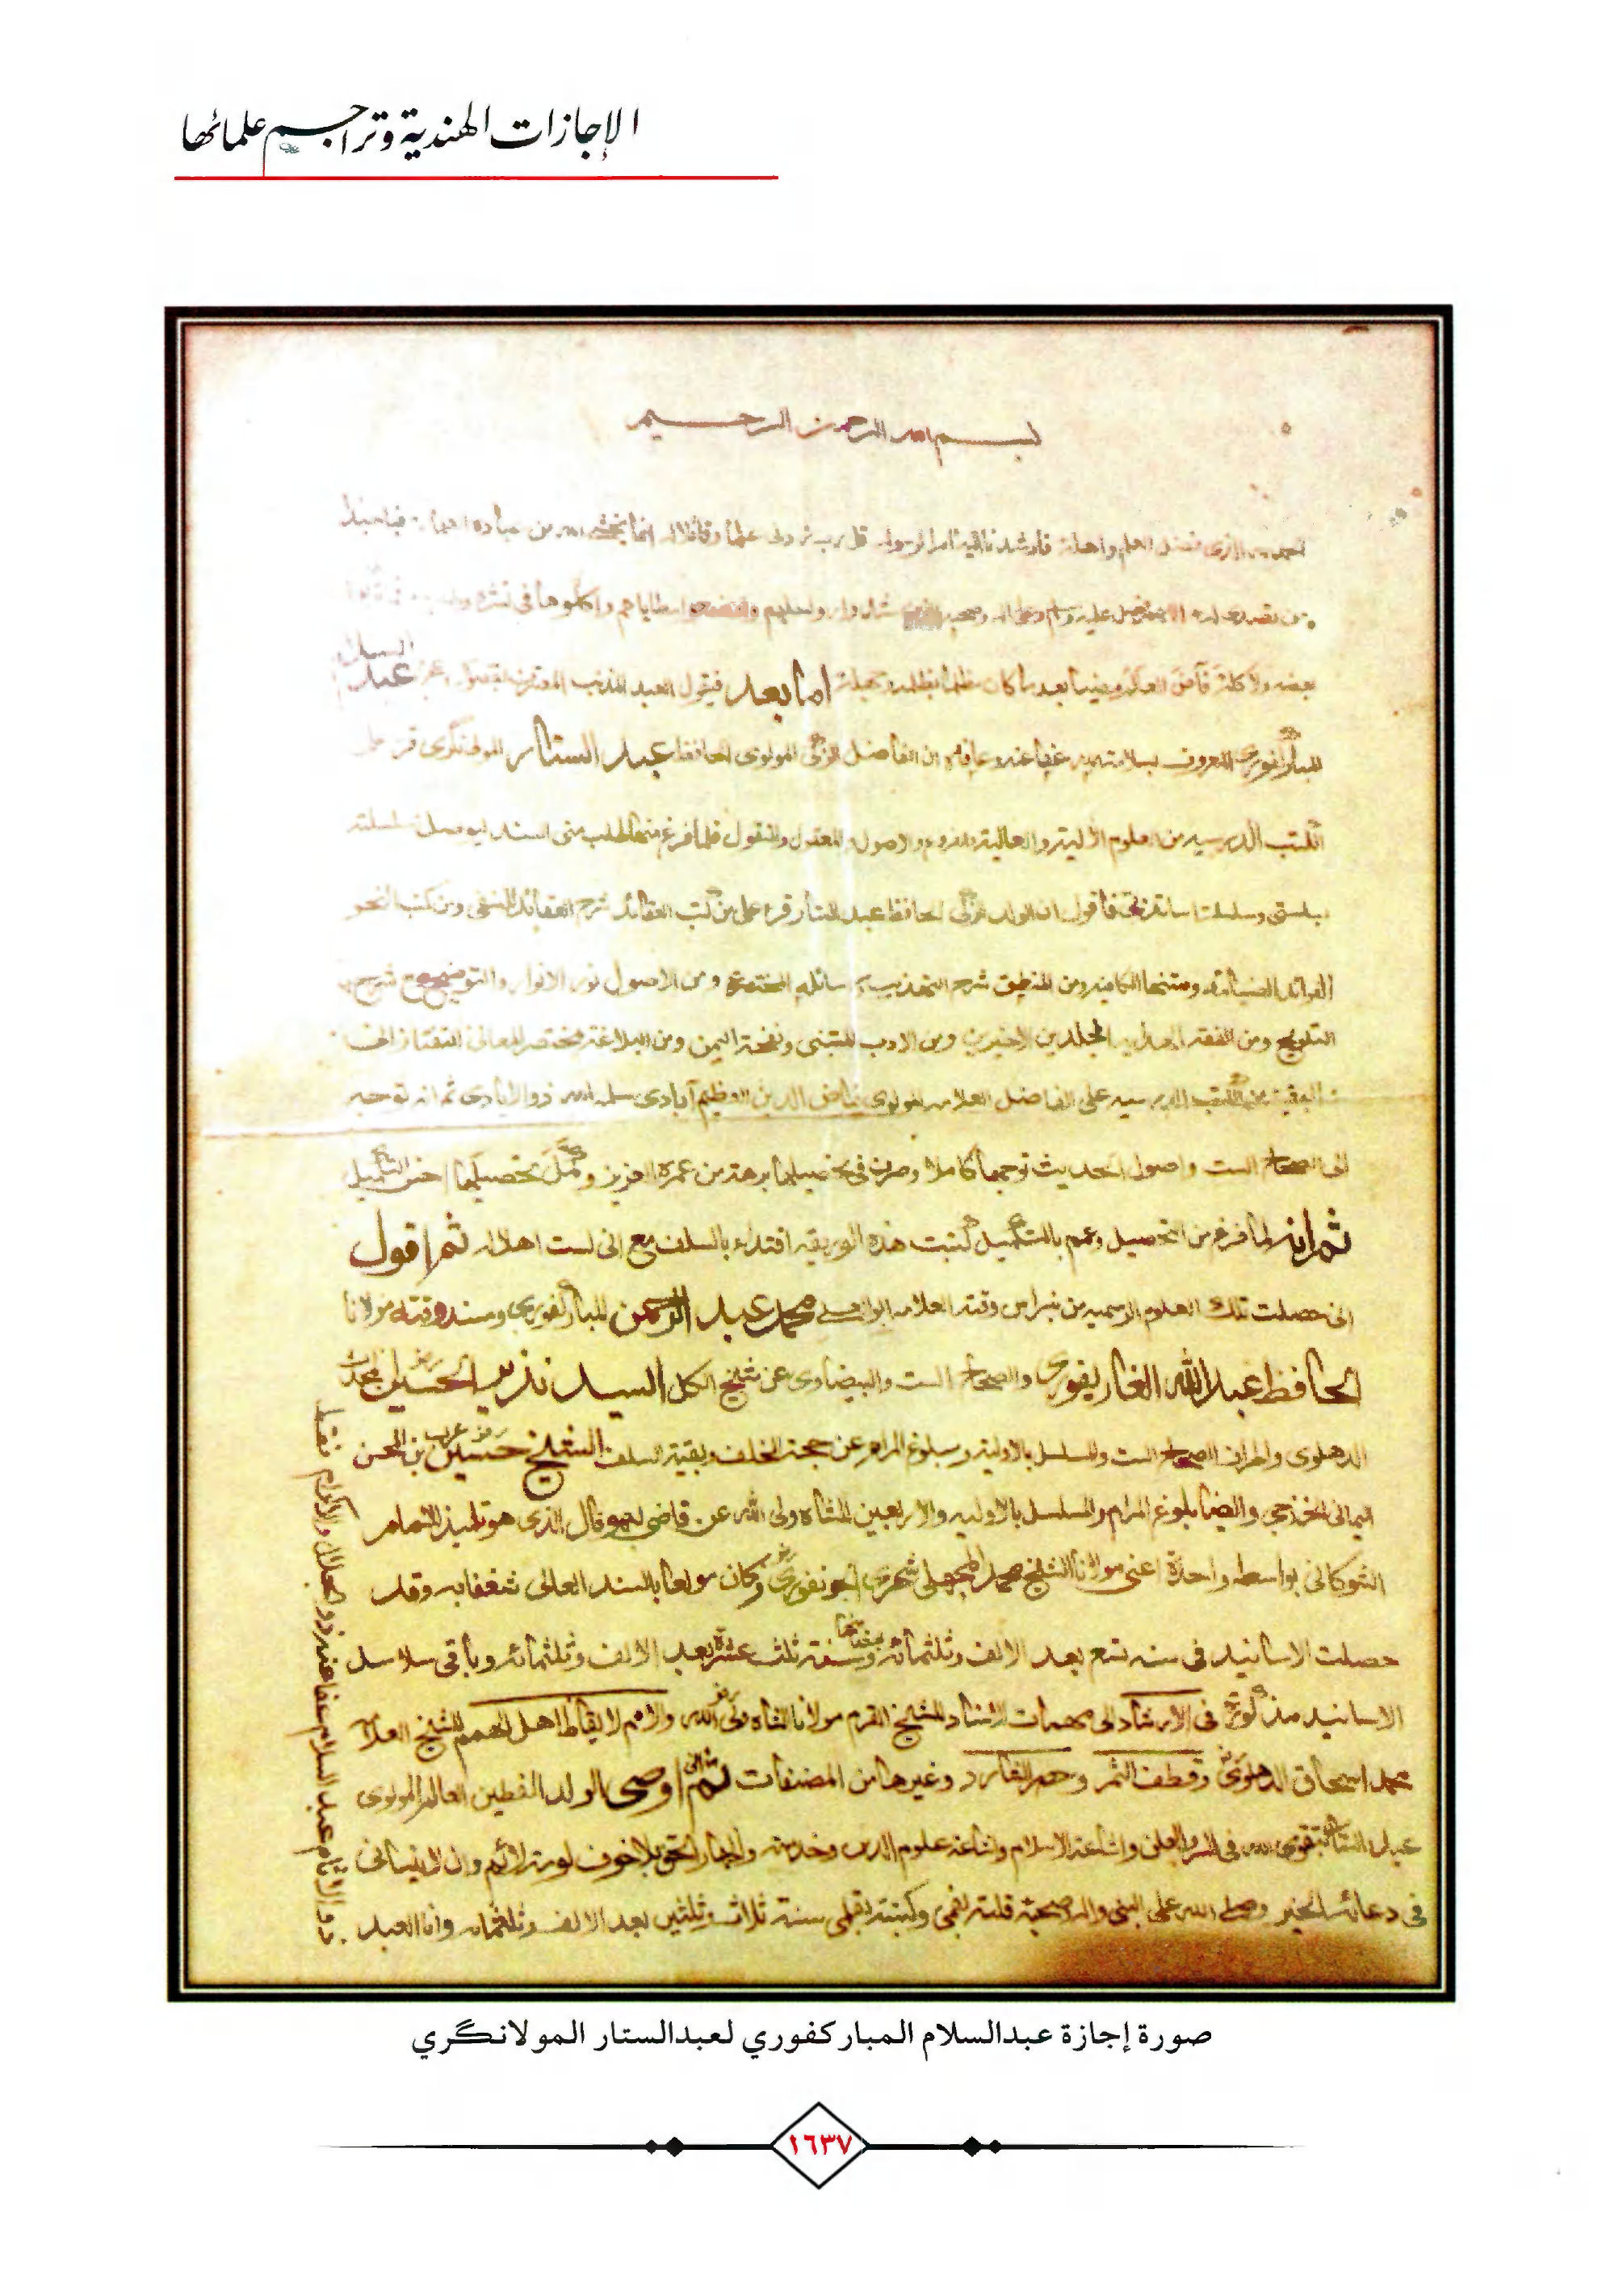 الإجازات الهندية وتراجم علمائها
بسم الله الرحمن الرحيم
العلم واهله قل رب زدنى علما وقائلا انما يخشى الله من عباده
صلى الله عليه وسلم وعلى اله وصحبه
اما بعد فيقول العبد المذنب عبد السلام
المباركفورى المعروف عفا عنه وعافاه ان الفاضل الزكى المولوى الحافظ عبد الستار المولانگرى قرء على
الكتب الدرسيه من العلوم الآلية والعالية والاصول والمعقول والمنقول فلما فرغ منها طلب منى السند ليوصل سلسلته
بسلسلتى وسلسلة اساتذتى فاقول ان الولد الزكى الحافظ عبد الستار قرء على من كتب العقائد شرح العقائد للنسفى ومن كتب النحو
الفوائد الضيائيه ومتنها الكافيه ومن المنطق شرح التهذيب ومن الاصول نور الانوار والتوضيح مع شرحه
التلويح ومن الفقه الهدايه المجلدين الاخيرين ومن الادب المتنبى ونفحة اليمن ومن البلاغة مختصر المعانى للتفتازانى
البقية من الكتب الدرسيه على الفاضل العلامه المولوى فياض الدين العظيم آبادى سلمه الله ذو الايادى ثم انه توجه
الى الصحاح الست واصول الحديث توجها كاملا وصرف فى تحصيلها برهة من عمره العزيز وكمل تحصيلها احسن التكميل
ثم انه لما فرغ من التحصيل وعمم بالتكميل كتبت هذه الوريقه اقتداء بالسلف مع انى لست اهلا له ثم اقول
انى حصلت تلك العلوم الرسميه من نبراس وقته العلامه ابو العلى محمد عبد الرحمن المباركفورى ومسند وقته مولانا
الحافظ عبد الله الغازيفورى والصحاح الست والبيضاوى عن شيخ الكل السيد نذير الحسين المحدث
الدهلوى واطراف الصحاح الست والمسلسل بالاوليه وبلوغ المرام عن حجة الخلف وبقية السلف الشيخ حسين عرب بن المحسن
اليمانى الخزرجى وايضا بلوغ المرام والمسلسل بالاوليه والاربعين للشاه ولى الله عن قاضى بهوفال الذى هو تلميذ للامام
الشوكانى بواسطه واحدة اعنى مولانا الشيخ محمد المجهلى شهرى الجونفورى وكان مولعا بالسند العالى شغفا به وقد
حصلت الاسانيد فى سنه تسع بعد الالف وثلثمائة وسنة ثلث عشرة بعد الالف وثلثمائه وباقى سلاسل
الاسانيد مذكورة فى الارشاد الى مهمات الاسناد للشيخ القرم مولانا الشاه ولى الله والامم لايقاظ اهل الهمم للشيخ العلامه
محمد اسحاق الدهلوى وقطف الثمر وحصر الشارد وغيرها من المصنفات ثم انى اوصى الولد الفطين العالم المولوى
عبد الستار بتقوى الله فى السر والعلن واشاعة الاسلام واشاعة علوم الدين وخدمته واظهار الحق بلا خوف لومة لائم وان لا ينسانى
فى دعائه الخير وصلى الله على النبى واله وصحبه قلته بفمى وكتبته بقلمى سنة ثلاث وثلثين بعد الالف وثلثمائه وانا العبد
عبد السلام عفا عنه ذو الجلال والاكرام فقط
صورة إجازة عبدالسلام المباركفوري لعبدالستار المولانگري
١٦٣٧